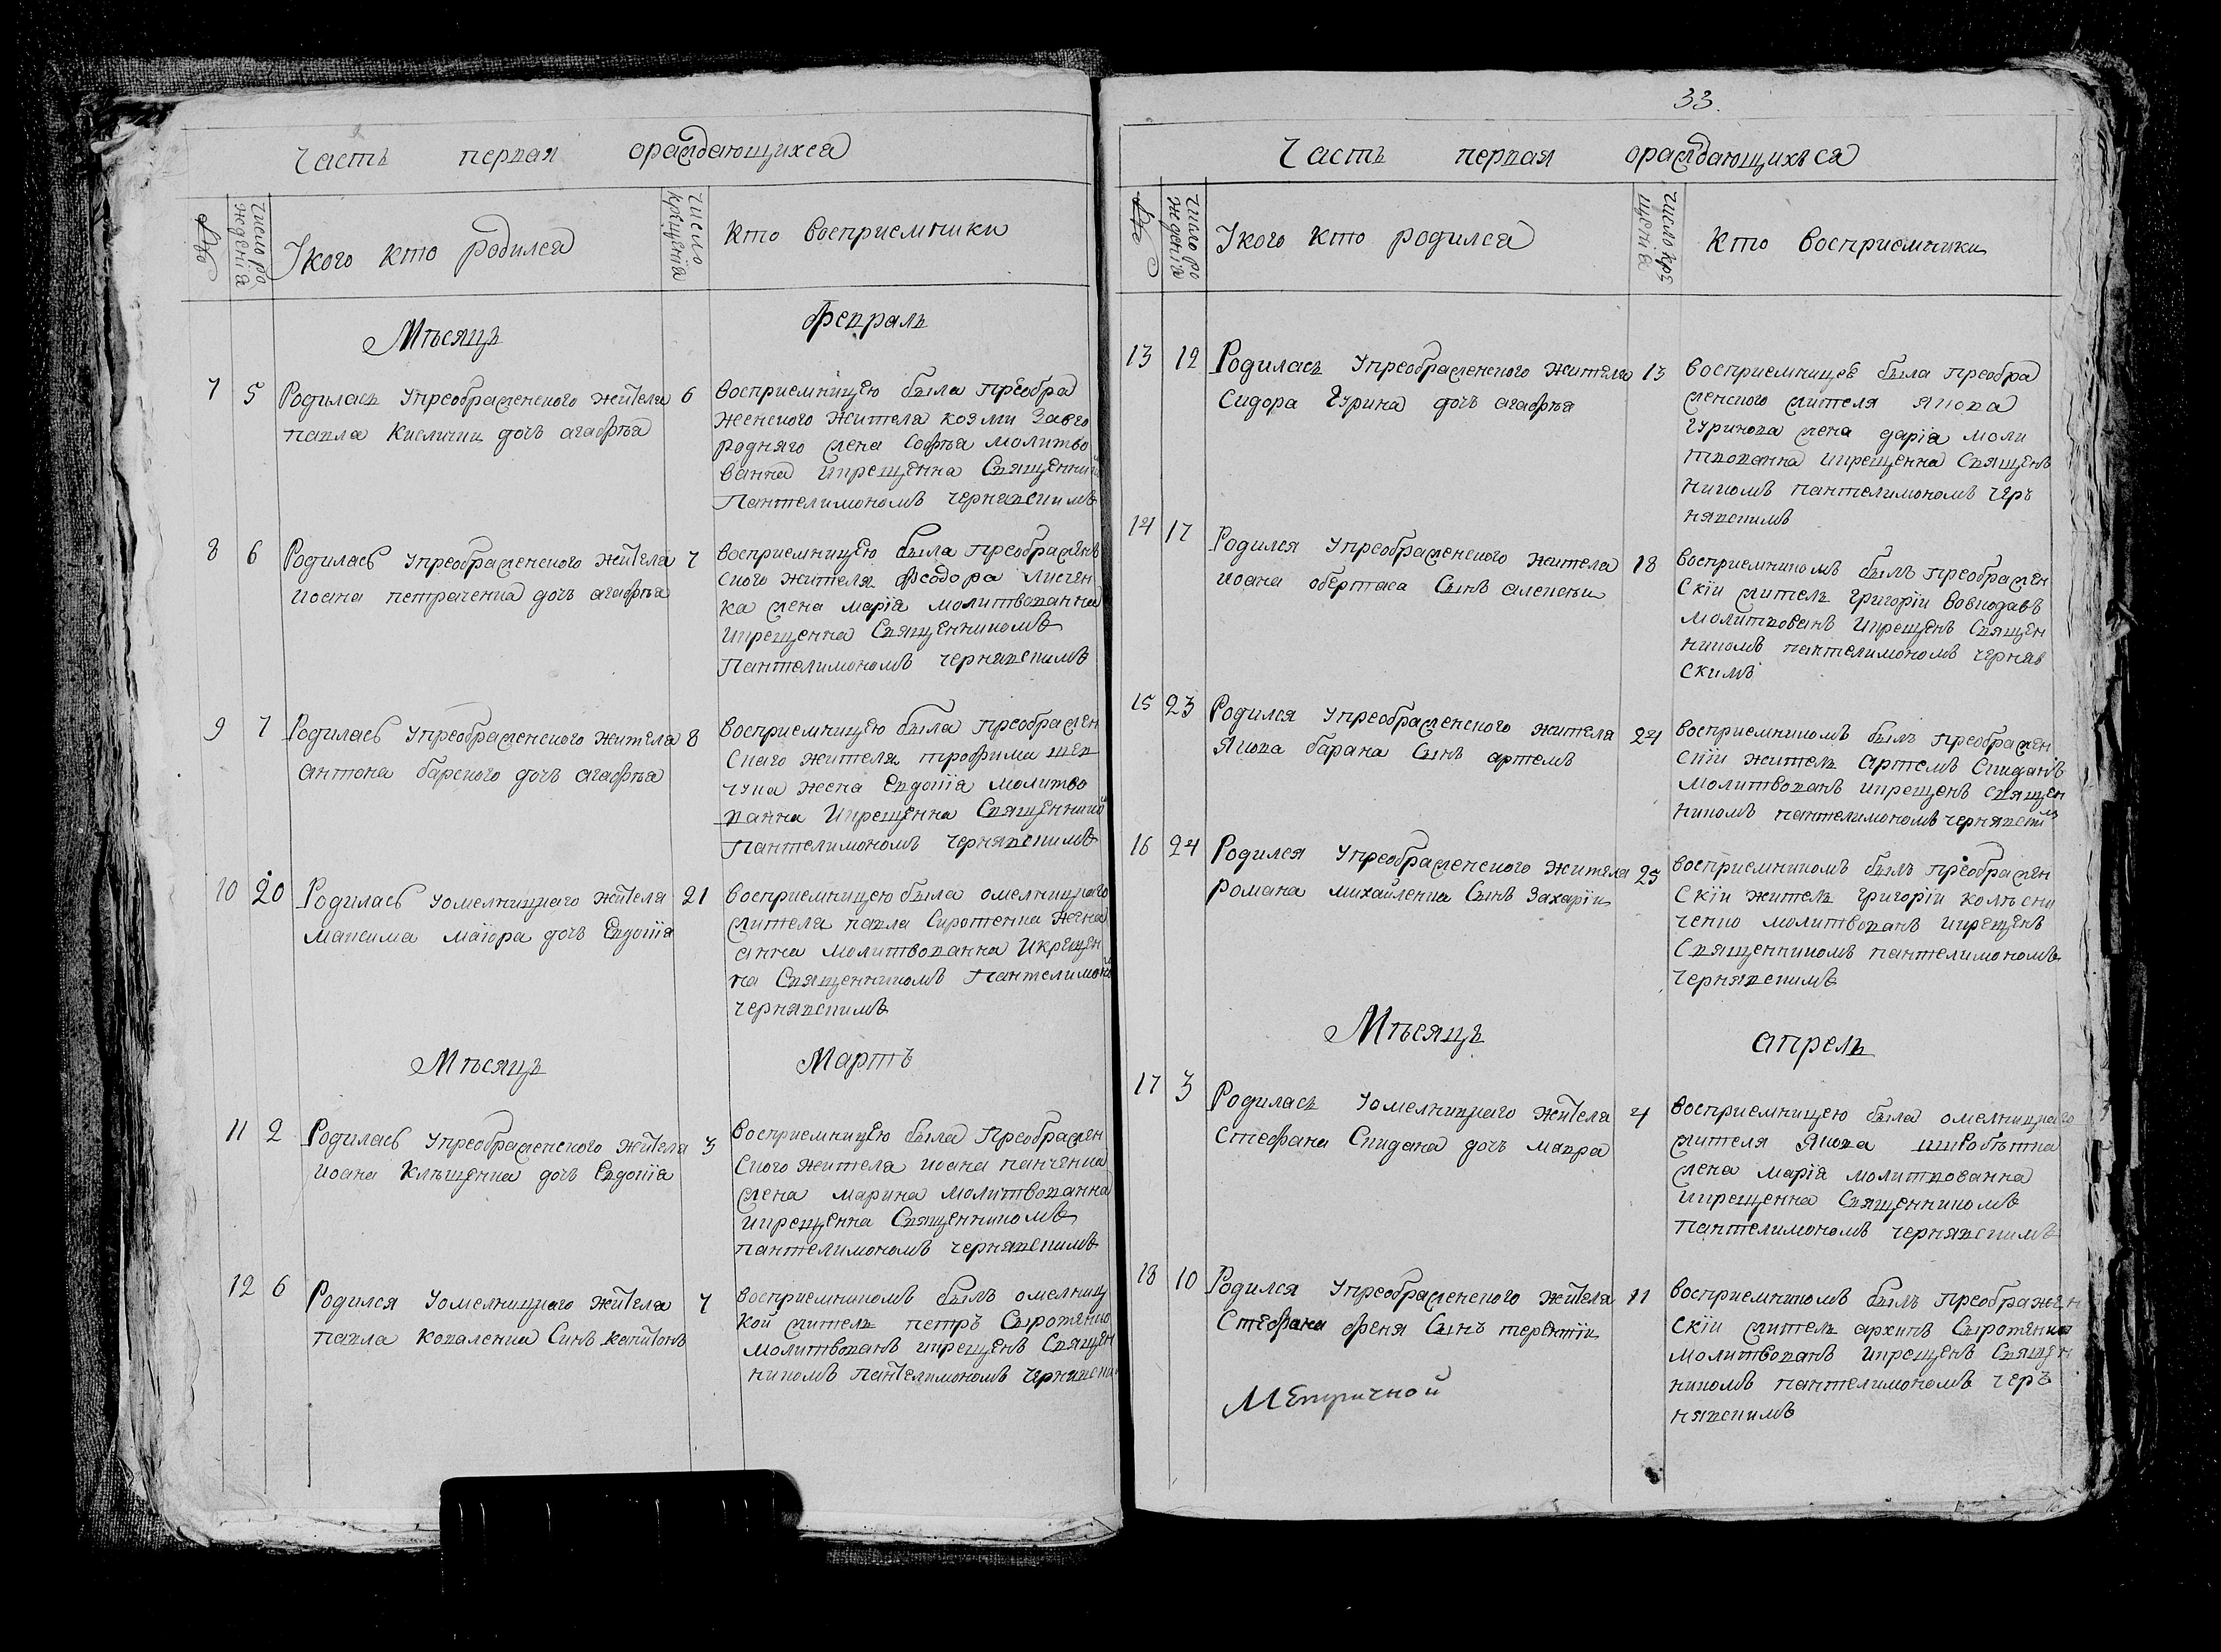 Часть первая ораждающихся
№
число рождения
Укого кто родился
число крещенїя
кто восприемники
Мѣсяцъ Февраль
7 5 Родилась Упреображенского жителя 6
павла Кислици дочь агафѣа
восприемницею была преобра
женского жителя козми Завго
родняго жена Софѣа молитво
ванна икрещенна Священник
Пантелимономъ чернявскимъ
8 6 Родилась Упреображенского жителя 7
иоана петраченка дочь агафѣа
восприемницею была преображенъ
ского жителя Феодора лисен
ка жена марїа молитвованна
икрещенна Священникомъ
Пантелимономъ чернявскимъ
9 7 Родилась Упреображенского жителя 8
антона барского дочь агафѣа
восприемницею была преображен
скаго жителя трофима шев
чука жена Евдокїа молитво
ванна Икрещенна Священнико
Пантелимономъ чернявскимъ
10 20 Родилась Уомелницкаго жителя 21
максима маиора дочь Евдокїа
восприемницею была омелницкаго
жителя павла Сиротенка жена
анна молитвованна Икрещен
на Священникомъ Пантелимоно
чернявскимъ
Мѣсяцъ Мартъ
11 2 Родилась Упреображенского жителя 3
иоана Клѣщенка дочь Евдокїа
восприемницею была Преображен
ского жителя иоана панченка
жена марина молитвованна
икрещенна Священникомъ
пантелимономъ чернявскимъ
12 6 Родился Уомелницкаго жителя 7
павла коваленка Синъ капитонъ
восприемникомъ былъ омелниц
кои житель петръ Сыротенко
молитвованъ икрещенъ Священ
никомъ пантелимономъ чернявски
33.
Часть первая ораждающихъся
№
число рожденїя
Укого кто родился
число крещенїя
кто восприемники
13 12 Родилась Упреображенского жителя 13
Сидора Гурина дочь агафѣя
восприемницею была преобра
женского жителя якова
Гуринова жена дарїа моли
твованна икрещенна Священъ
никомъ пантелимономъ черъ
нявскимъ
14 17 Родился Упреображенского жителя 18
иоана обертаса Сынъ алексеи
восприемникомъ былъ преображен
скїи житель григорїи вовкодавъ
молитвованъ икрещенъ Священ
никомъ пантелимономъ черняв
скимъ
15 23 Родился Упреображенского жителя 24
Якова барана Сынъ артемъ
восприемникомъ былъ преображен
скїи житель Артемъ Спиданъ
молитвованъ икрещенъ священ
никомъ пантелимономъ чернявским
16 24 Родился Упреображенского жителя 25
романа михайленка Сынъ Захарїи
восприемникомъ былъ преображен
скїи житель григорїи колѣсни
ченко молитвованъ икрещенъ
Священникомъ пантелимономъ
чернявскимъ
Мѣсяцъ апрель
17 3 Родилась Уомелницкаго жителя 4
Стефана Спидана дочь мавра
восприемницею была омелницкаго
жителя Якова
жена марїа молитвованна
икрещенна Священникомъ
пантелимономъ чернявскимъ
18 10 Родился Упреображенского жителя 11
Стефана феня Сынъ терентїи
восприемникомъ былъ преображен
скїи житель архипъ Сыротенко
молитвованъ икрещенъ Священ
никомъ пантелимономъ черъ
нявскимъ
Метричной